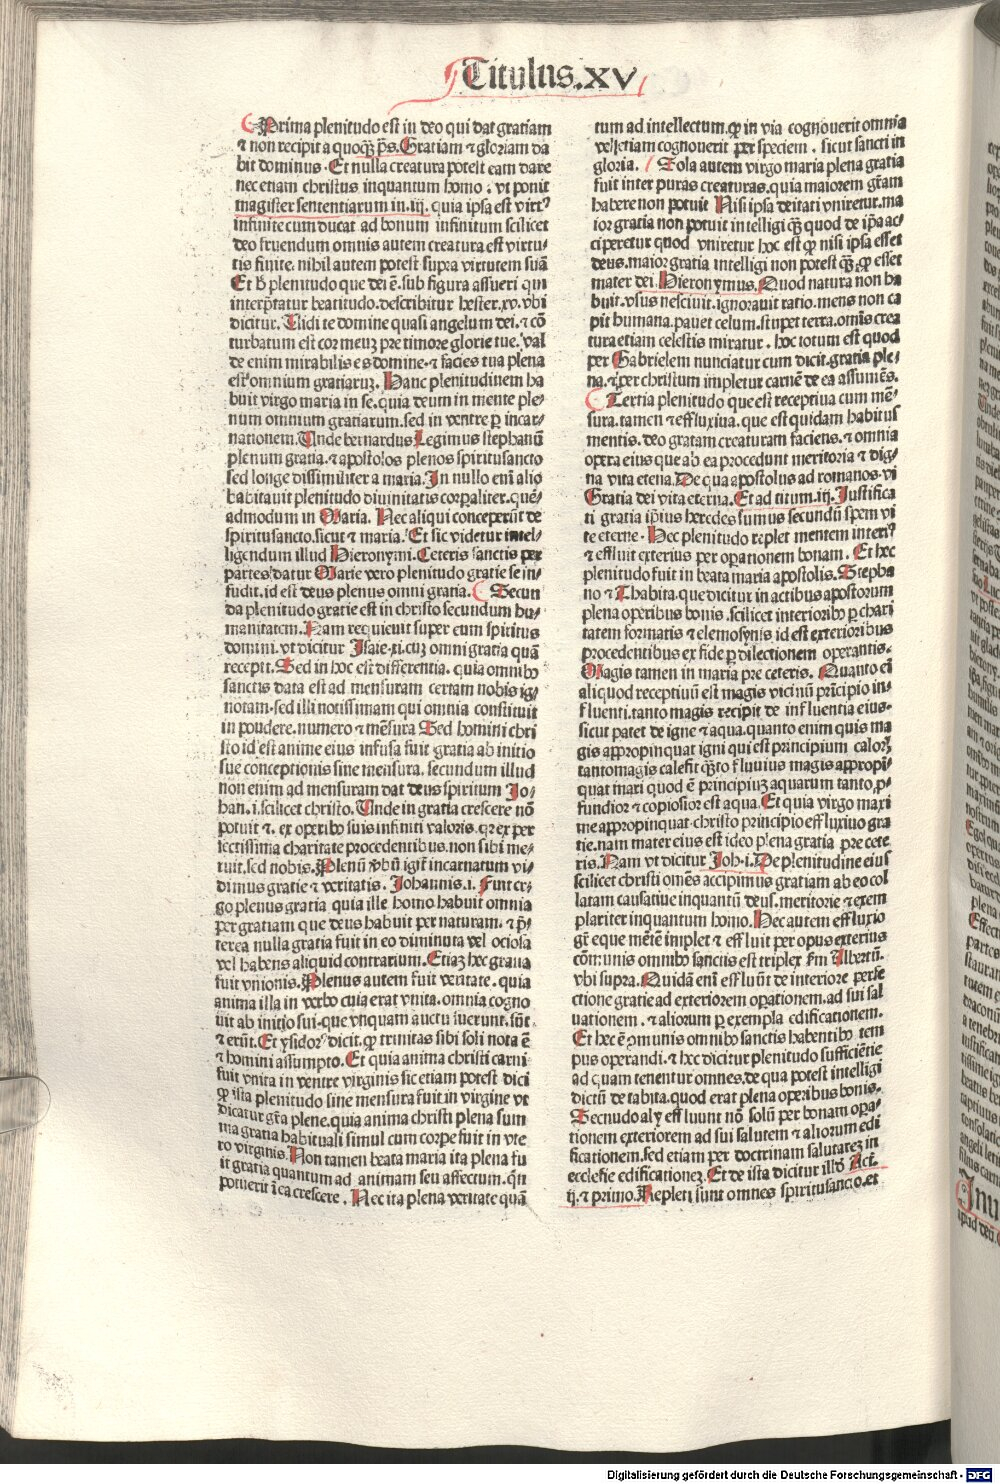 Titulus.xv
Prima plenitudo est in deo qui dat gratiam
⁊ non recipit a quoqꝫ p̄s. Gratiam ⁊ gloriam da
bit dominus. Et nulla creatura potest eam dare
nec etiam christus inquantum homo. vt ponit
magister sententiarum in.iij. quia ipsa est virtꝰ
infinite cum ducat ad bonum infinitum scilicet
deo fruendum omnis autem creatura est virtu-
tis finite. nihil autem potest supra virtutem suā
Et plenitudo que dei ē. sub figura assueri qui
interp̄tatur beatitudo. describitur hester.xv. vbi
dicitur. Uidi te domine quasi angelum dei. ⁊ cō
turbatum est cor meuꝫ pre timore glorie tue. val
de enim mirabilis es domine. ⁊ facies tua plena
est omnium gratiaruꝫ. Hanc plenitudinem ha
buit virgo maria in se. quia deum in mente ple-
num omnium gratiarum. sed in ventre ꝑ incar-
nationem. Unde bernardus Legimus stephanū
plenum gratia. ⁊ apostolos plenos spiritusancto
sed longe dissimiliter a maria. In nullo eni alio
habitauit plenitudo diuinitatis corꝑaliter. quē-
admodum in Maria. Nec aliqui conceperūt de
spiritusancto. sicut ⁊ maria. Et sic videtur intel-
ligendum illud Hieronymi. Ceteris sanctis per
partes datur Marie vero plenitudo gratie se in-
fudit. id est deus plenus omni gratia. Secun
da plenitudo gratie est in christo secundum hu-
manitatem. Nam requieuit super eum spiritus
domini. vt dicitur Isaie.xi. cuꝫ omni gratia quā
recepit. Sed in hoc est differentia. quia omnibꝰ
sanctis data est ad mensuram certam nobis ig-
notam. sed illi notissimam qui omnia constituit
in pondere. numero ⁊ mēsura Sed homini chri
sto id est anime eius infusa fuit gratia ab initio
sue conceptionis sine mensura. secundum illud
non enim ad mensuram dat deus spiritum Jo-
han.i. scilicet christo. Unde in gratia crescere nō
potuit ⁊. ex operibꝰ suis infiniti valoris. qr ex per
fectissima charitate procedentibus. non sibi me-
ruit. sed nobis. Plenū incarnatum vi-
dimus gratie ⁊ veritatis. Johannis.i. Fuit er-
go plenus gratia quia ille homo habuit omnia
per gratiam que deus habuit per naturam. ⁊ p̄-
terea nulla gratia fuit in eo diminuta vel ociosa
vel habens aliquid contrarium. Etiaꝫ hec gratia
fuit vnionis. Plenus autem fuit veritate. quia
anima illa in verbo cuia erat vnita. omnia cogno
uit ab initio sui. que vnquam auctu fuerunt. sūt.
⁊ erūt. Et ysidorꝰ dicit. ꝙ trinitas sibi soli nota ē
⁊ homini assumpto. Et quia anima christi carni-
fuit vnita in ventre virginis sic etiam potest dici
ꝙ ista plenitudo sine mensura fuit in virgine vt
dicatur gr̄a plene. quia anima christi plena sum
ma gratia habituali simul cum corpe fuit in vte
ro virginis. Non tamen beata maria ita plena fu
it gratia quantum ad animam seu affectum. qn̄
potuerit ī ea crescere. Nec ita plena veritate quā-
tum ad intellectum. ꝙ in via cognouerit omnia
vel etiam cognouerit per speciem. sicut sancti in
gloria. Sola autem virgo maria plena gratia
fuit inter puras creaturas. quia maiorem gr̄am
habere non potuit Nisi ipsa deitati vniretur. ma
ior gratia non potuit intelligi qꝫ quod de ip̄a ac-
ciperetur quod vniretur hoc est ꝙ nisi ipsa esset
deus. maior gratia intelligi non potest qꝫ ꝙ esset
mater dei. Hieronymus. Quod natura non ha
buit. vsus nesciuit. ignorauit ratio. mens non ca
pit humana. pauet celum. stupet terra. omīs crea
tura etiam celestis miratur. hoc totum est quod
per Gabrielem nunciatur cum dicit. gratia ple-
na. ⁊ per christum impletur carnē de ea assumēs.
Tertia plenitudo que est receptiua cum mē-
sura. tamen ⁊ effluxiua. que est quidam habitus
mentis. deo gratam creaturam faciens. ⁊ omnia
opera eius que ab ea procedunt meritoria ⁊ dig-
na vita eterna. De qua apostolus ad romanos.vi
Gratia dei vita eterna. Et ad titum.iij. Justifica
ti gratia ip̄ius heredes sumus secundū spem vi
te eterne. Hec plenitudo replet mentem interiꝰ
⁊ effluit exterius per operationem bonam. Et hec
plenitudo fuit in beata maria apostolis. Stepha
no ⁊ Thabita. que dicitur in actibus apostorum
plena operibus bonis. scilicet interioribꝰ ꝑ chari
tatem formatis ⁊ elemosynis id est exterioribus
procedentibus ex fide ꝑ dilectionem operantis.
Magis tamen in maria pre ceteris. Quanto eī
aliquod receptiuū est magis vicinū pricipio in-
fluenti. tanto magis recipit de influentia eius.
sicut patet de igne ⁊ aqua. quanto enim quis ma
gis appropinquat igni qui est principium caloꝝ
tanto magis calefit qꝫto fluuius magis appropī-
quat mari quod ē principiuꝫ aquarum tanto ꝓ-
fundior ⁊ copiosior est aqua. Et quia virgo maxi
me appropinquat christo principio effluxiuo gra
tie. nam mater eius est ideo plena gratia pre cete
ris. Nam vt dicitur Joh.i. De plenitudine eius
scilicet christi omēs accipimus gratiam ab eo col
latam causatiue inquantū deus. meritorie ⁊ exem
plariter inquantum homo. Hec autem effluxio
gr̄e que mētē implet ⁊ effluit per opus exterius
cōmunis omnibꝰ sanctis est triplex fm Albertū.
vbi supra. Quidā eni effluūt de interiore perfe
ctione gratie ad exteriorem operationem. ad sui sal
uationem. ⁊ aliorum ꝑ exempla edificationem.
Et hec ē omunis omnibꝰ sanctis habentibꝰ tem
pus operandi. ⁊ hec dicitur plenitudo sufficiētie
ad quam tenentur omnes. de qua potest intelligi
dictū de tabita. quod erat plena operibus bonis.
Secnudo aly effluunt nō solū per bonam opa-
tionem exteriorem ad sui salutem ⁊ aliorum edi
ficationem. sed etiam per doctrinam salutareꝫ in
ecclesie edificationeꝫ. Et de ista dicitur illd̄ Act.
ij. ⁊ primo. Repleti sunt omnes spiritusancto. et
Digitalisierung gefördert durch die Deutsche Forschungsgemeinschaft - DFG